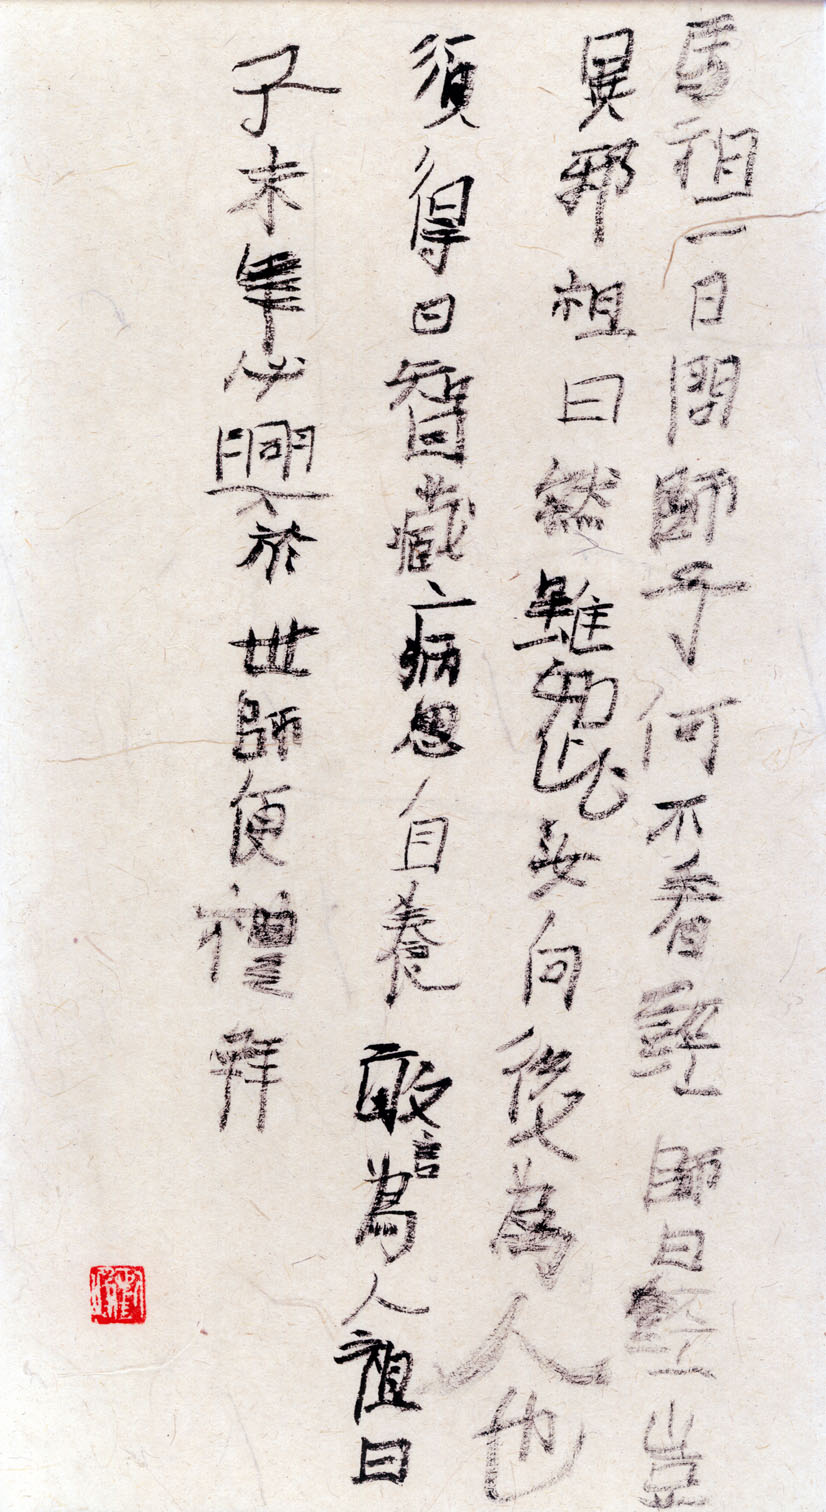 馬祖一日問師子何不看經師曰經豈
異邪祖曰然雖如此汝向後為人也
須得曰智藏病思自養敢言為人祖曰
子末年必興於世師便禮拜